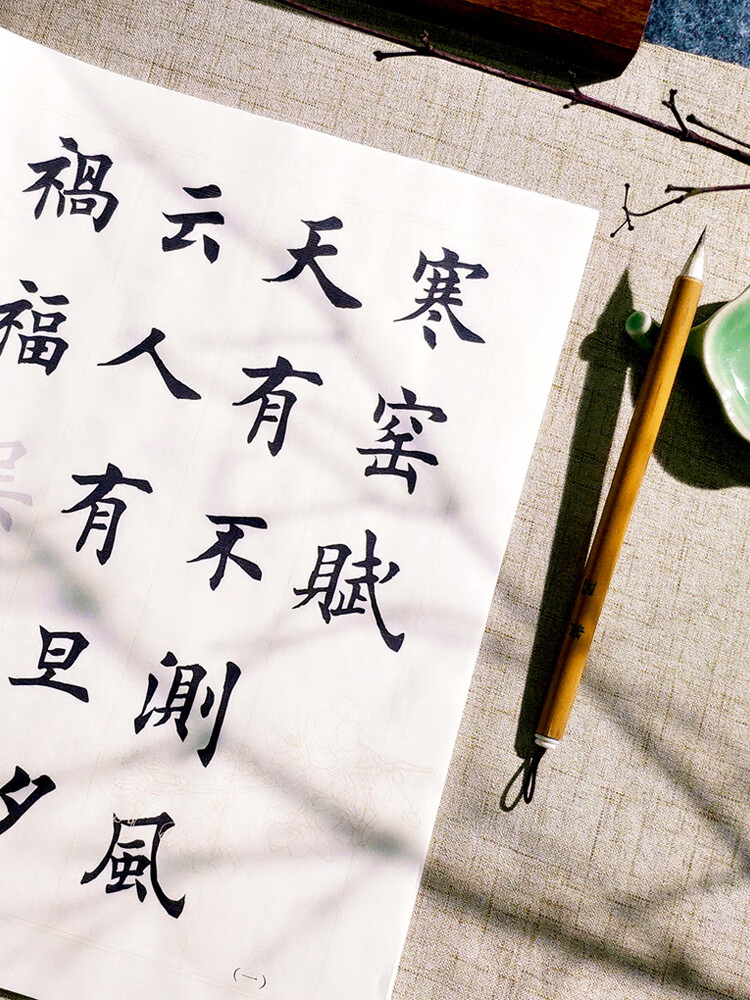 寒窑賦
天有不測風
云人有旦夕
禍福
(一)